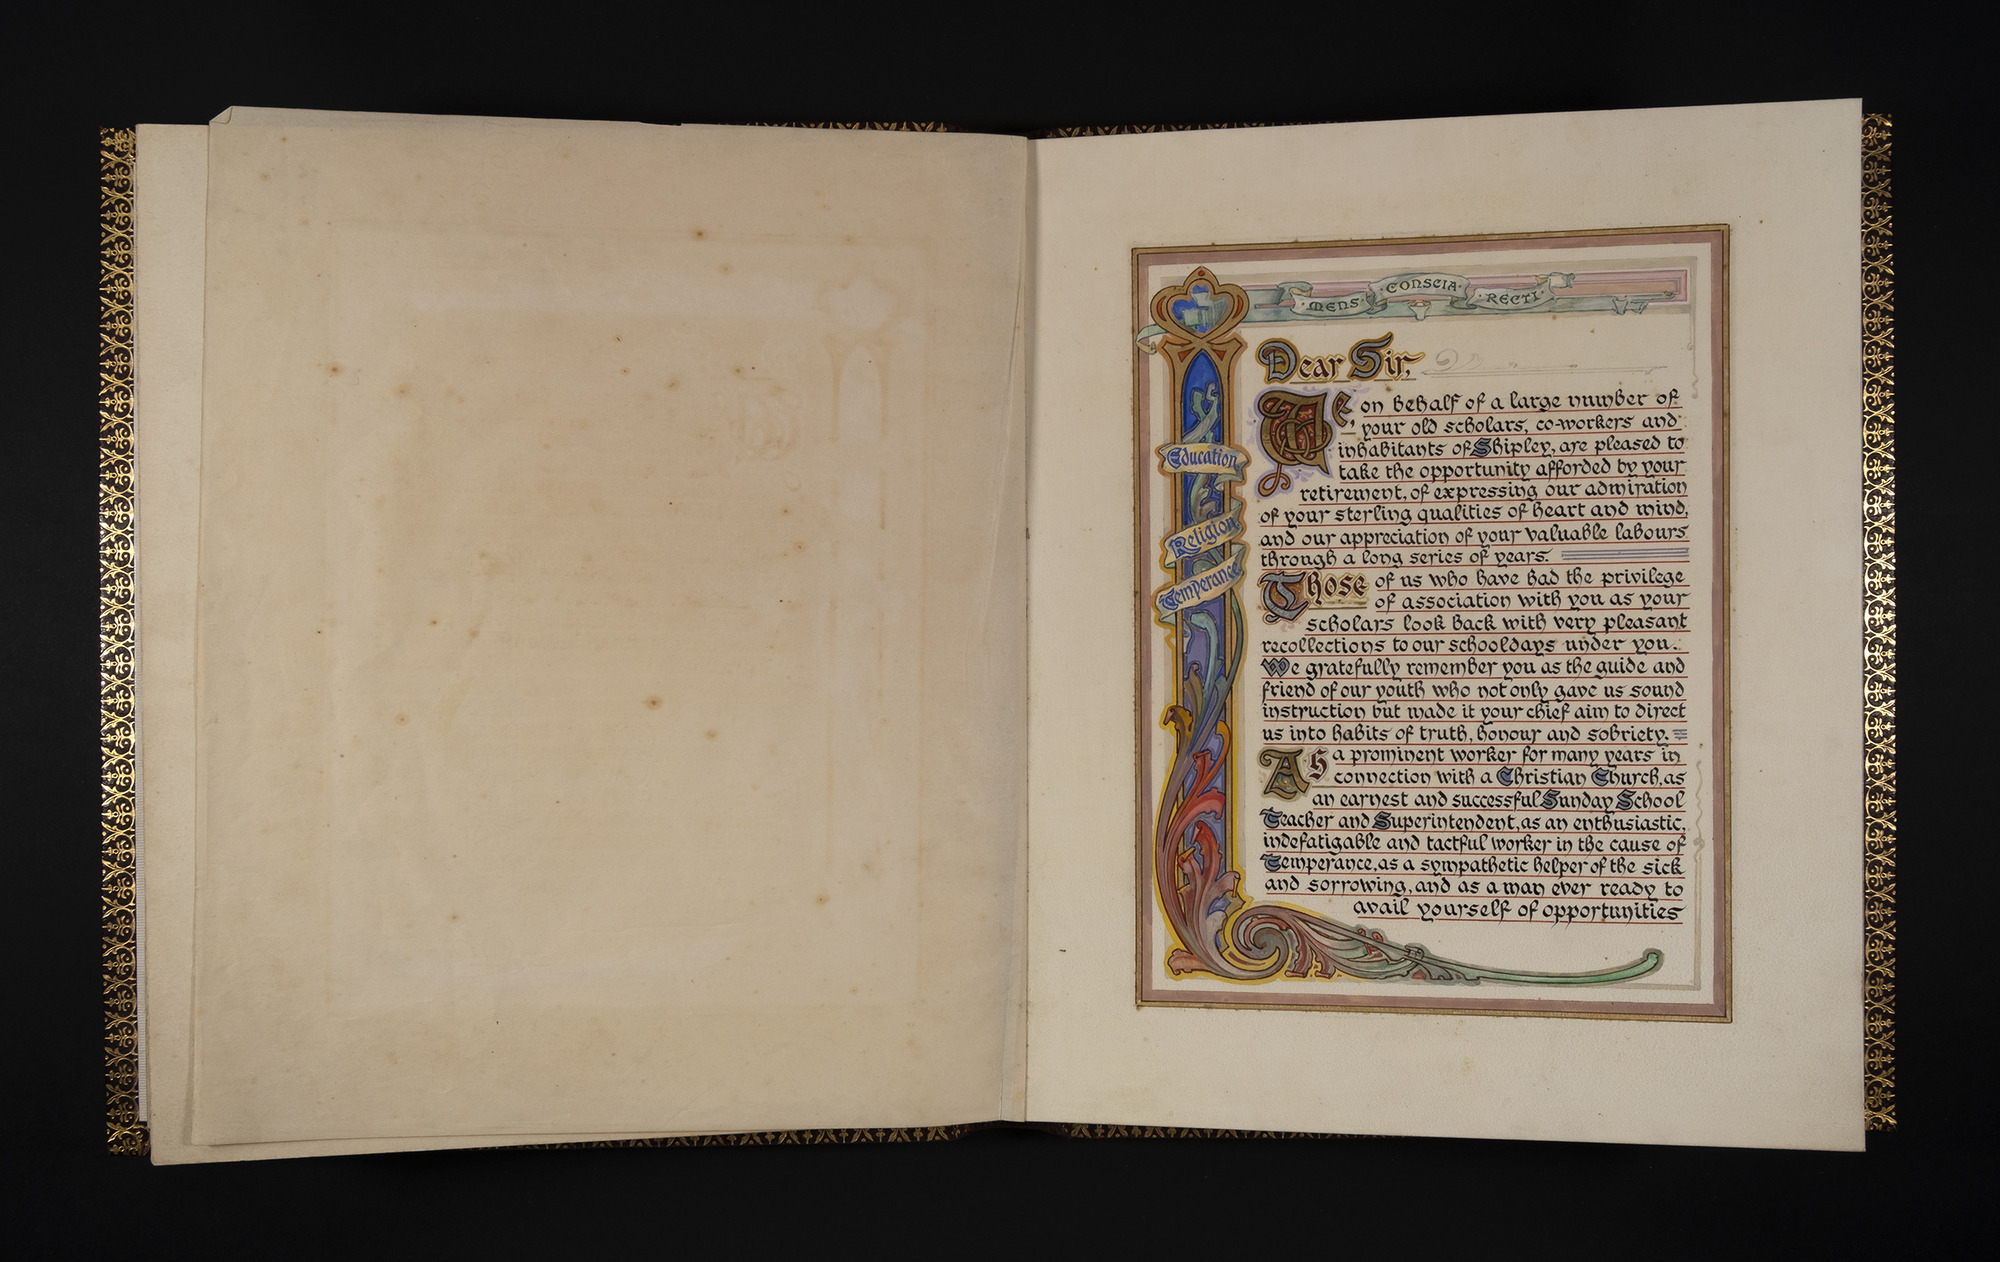 MENS CONSCIA RECTI
Dear Sir,
We, on behalf of a large number of
your old scholars, co-workers and
inhabitants of Shipley, are pleased to
take the opportunity afforded by your
retirement, of expressing our admiration
of your sterling qualities of heart and mind,
and our appreciation of your valuable labours
through a long series of years.
Those of us who have had the privilege
of association with you as your
scholars look back with very pleasant
recollections to our schooldays under you.
We gratefully remember you as the guide and
friend of our youth who not only gave us sound
instruction but made it your chief aim to direct
us into habits of truth, honour and sobriety.
As a prominent worker for many years in
connection with a Christian Church, as
an earnest and successful Sunday School
Teacher and Superintendent, as an enthusiastic,
indefatigable and tactful worker in the cause of
Temperance, as a sympathetic helper of the sick
and sorrowing, and as a man ever ready to
avail yourself of opportunities
Education
Religion
Temperance